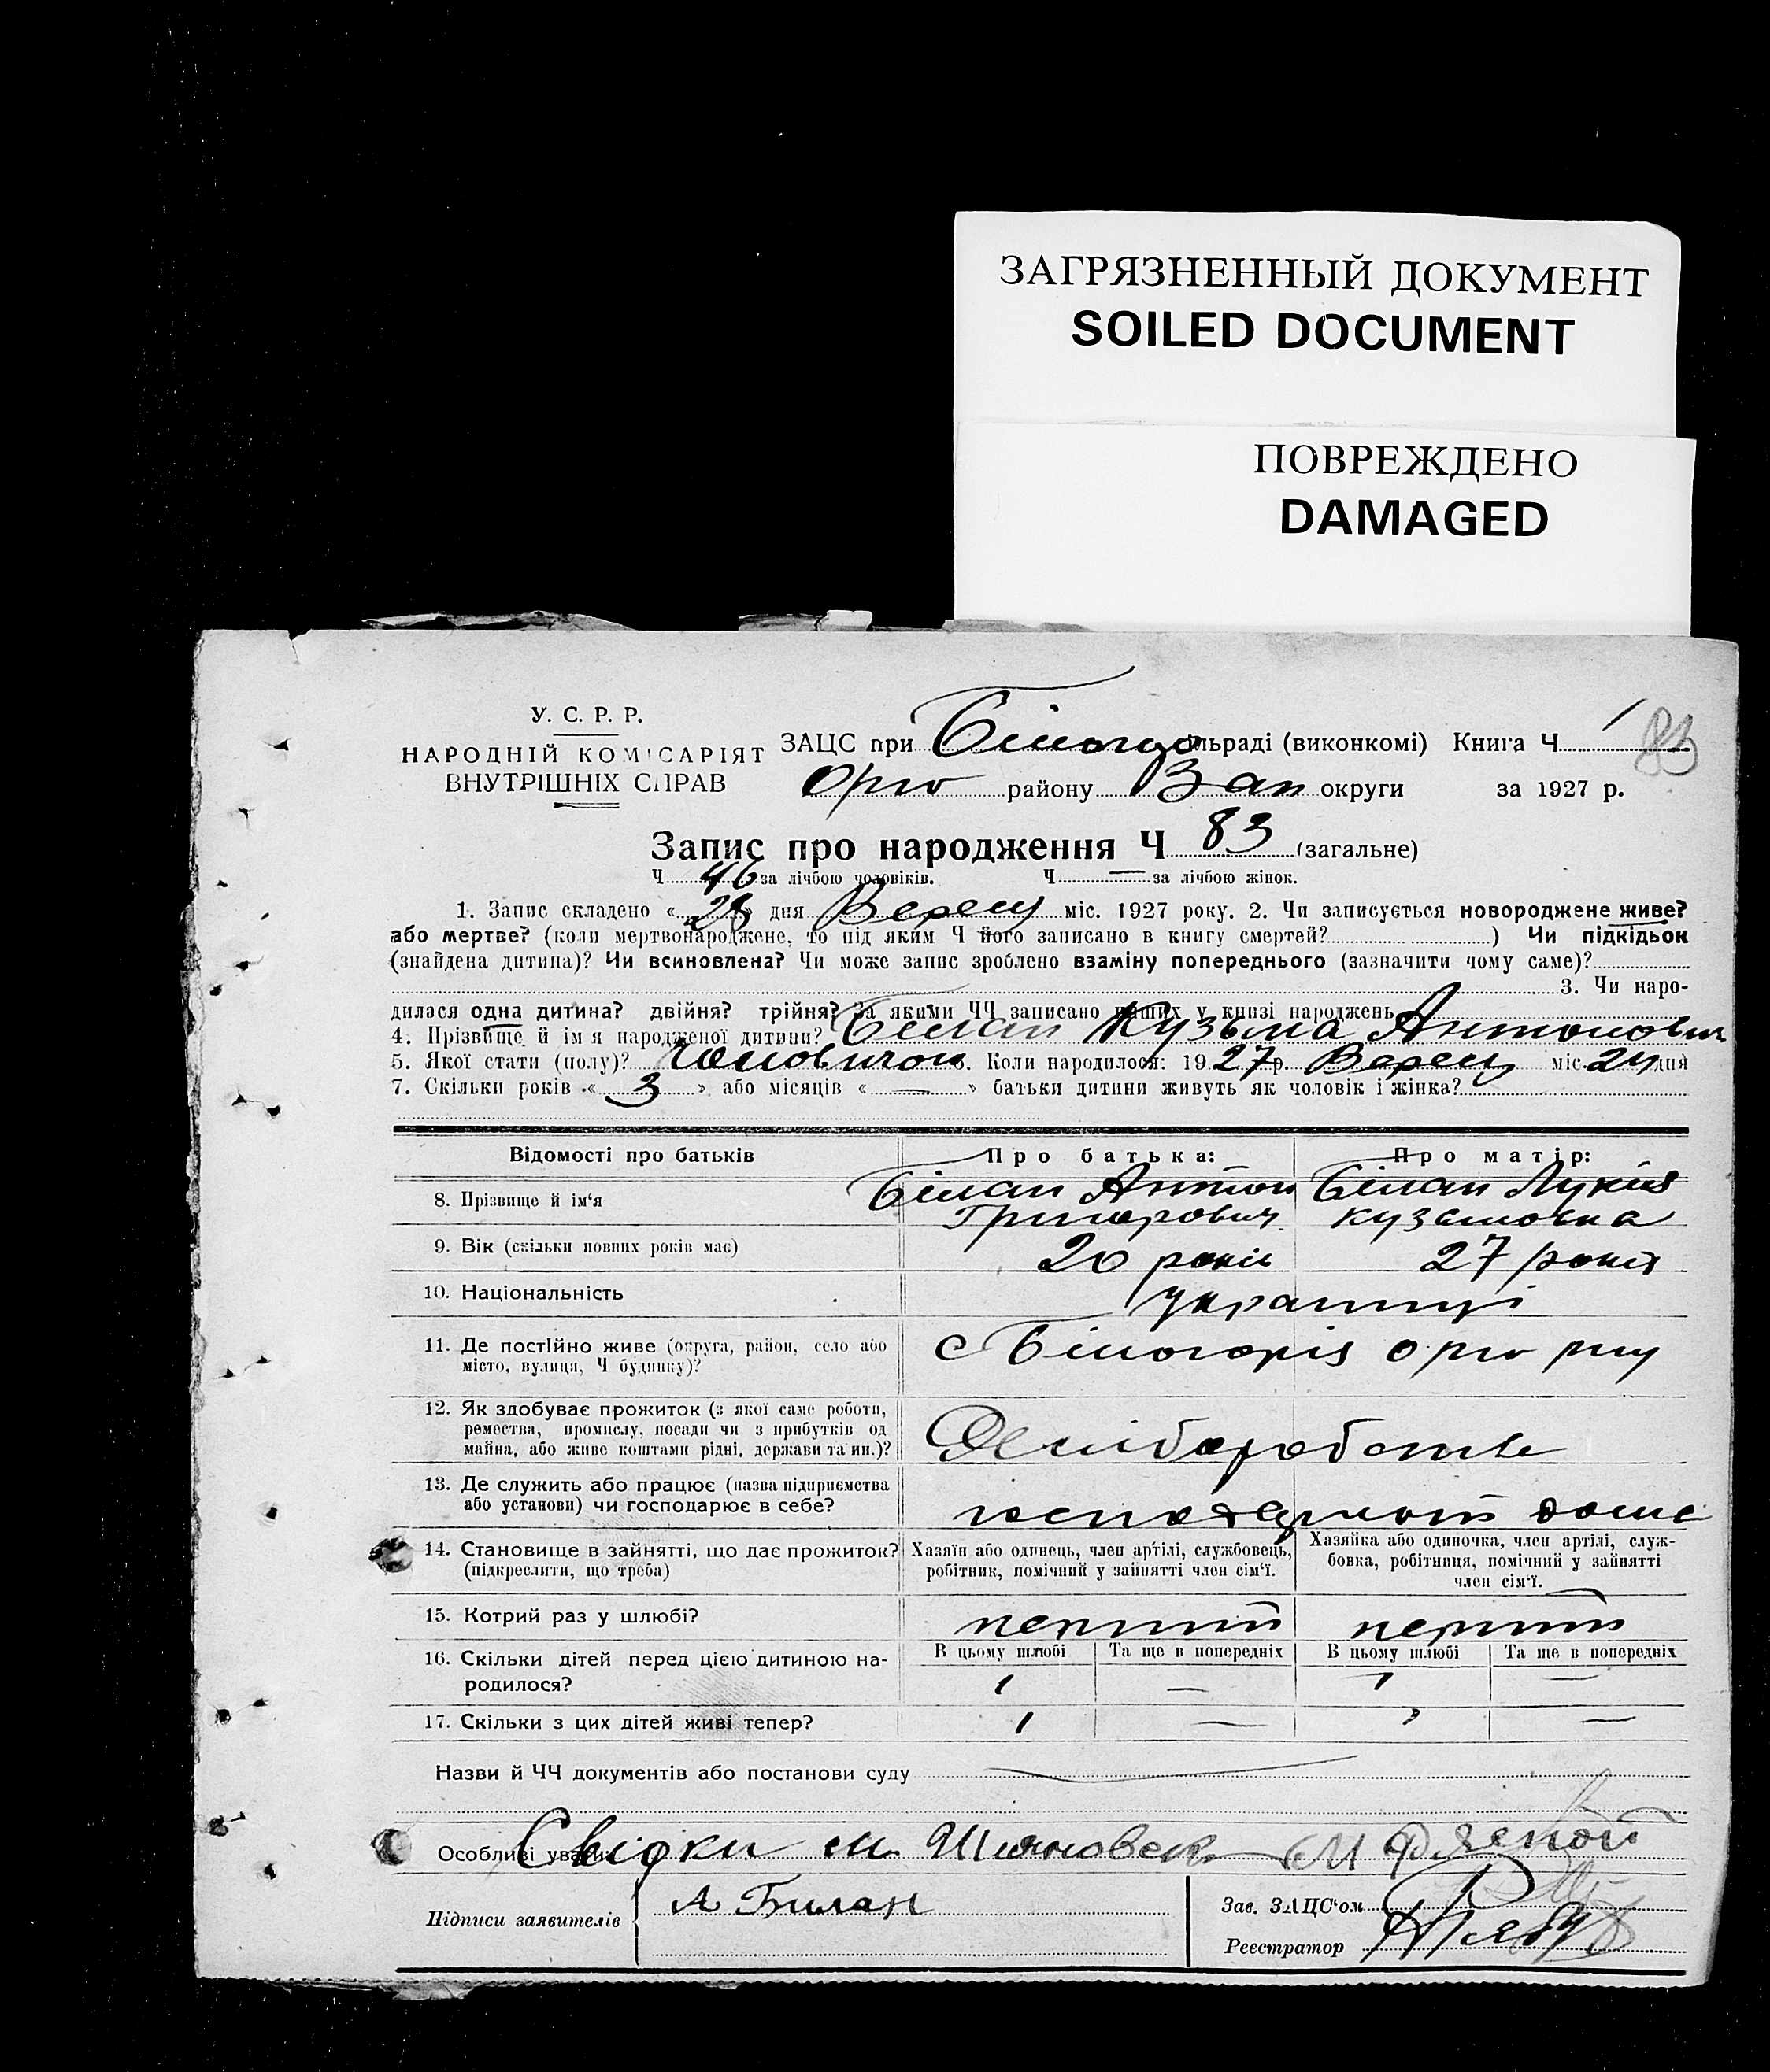 ЗАГРЯЗНЕННЫЙ ДОКУМЕНТ
SOILED DOCUMENT
ПОВРЕЖДЕНО
DAMAGED
У. С. Р. Р.
НАРОДНІЙ КОМІСАРІЯТ
ВНУТРІШНІХ СПРАВ
ЗАЦС при Білогир льраді (виконкомі) Книга Ч 1 83
Оріх району Зап округи за 1927 р.
Запис про народження Ч 83 (загальне)
Ч 46 за лічбою чоловіків. Ч — за лічбою жінок.
1. Запис складено «28» дня Вересн міс. 1927 року. 2. Чи записується новороджене живе?
або мертве? (коли мертвонароджене, то під яким Ч його записано в книгу смертей?) Чи підкідьок
(знайдена дитина)? Чи всиновлена? Чи може запис зроблено взаміну попереднього (зазначити чому саме)?
3. Чи наро-
дилася одна дитина? двійня? трійня? За якими ЧЧ записано инших у книзі народжень
4. Прізвище й ім'я народженої дитини? Білан Кузьма Антонович
5. Якої стати (полу)? Чоловичок 6. Коли народилося: 1927 р. Вересн міс. 24 дня
7. Скільки років «3» або місяців «—» батьки дитини живуть як чоловік і жінка?
Відомості про батьків Про батька: Про матір:
8. Прізвище й ім'я Білан Антон Білан Лукія
Григорович Кузьмовна
9. Вік (скільки повних років має) 20 років 27 років
10. Національність українці
11. Де постІйно живе (округа, район, село або
місто, вулиця, Ч будинку)? с Білогорія Оріх рну
12. Як здобуває прожиток (з якої саме роботи,
ремества, промислу, посади чи з прибутків од
майна, або живе коштами рідні, держави та ин.)?
13. Де служить або працює (назва підприємства
або установи) чи господарює в себе? дома
14. Становище в зайнятті, що дає прожиток? Хазяїн або одинець, член артілі, службовець, Хазяйка або одиночка, член артілі, служ-
(підкреслити, що треба) робітник, помічний у зайнятті член сім'ї. бовка, робітниця, помічний у зайнятті
член сім'ї.
15. Котрий раз у шлюбі? перший перший
16. Скільки дітей перед цією дитиною на- В цьому шлюбі Та ще в попередніх В цьому шлюбі Та ще в попередніх
родилося? 1 — 1 —
17. Скільки з цих дітей живі тепер? 1 — 1 —
Назви й ЧЧ документів або постанови суду
Особливі уваги Свідки
Підписи заявителів А Билан Зав. ЗАЦС'ом
Реєстратор